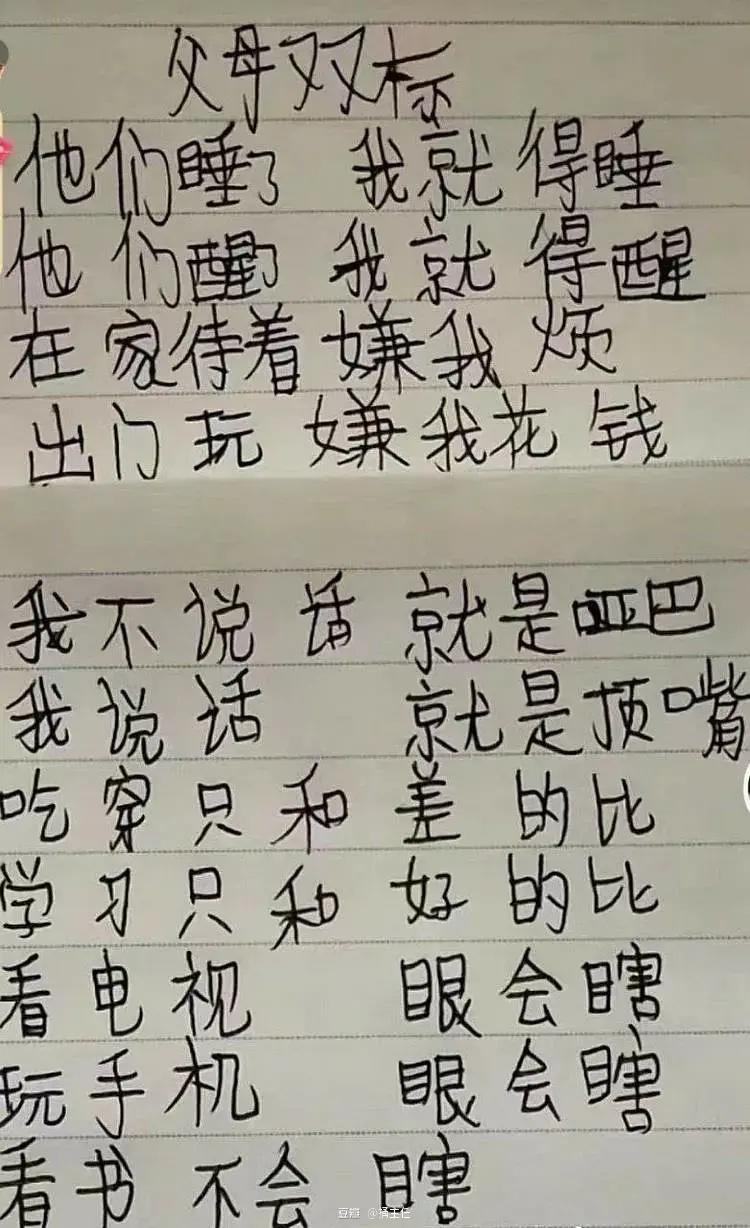 父母双标
他们睡了 我就得睡
他们醒了 我就得醒
在家待着 嫌我烦
出门玩 嫌我花钱
我不说话 就是哑巴
我说话 就是顶嘴
吃穿只和差的比
学习只和好的比
看电视 眼会瞎
玩手机 眼会瞎
看书不会瞎
豆瓣 @桶主任